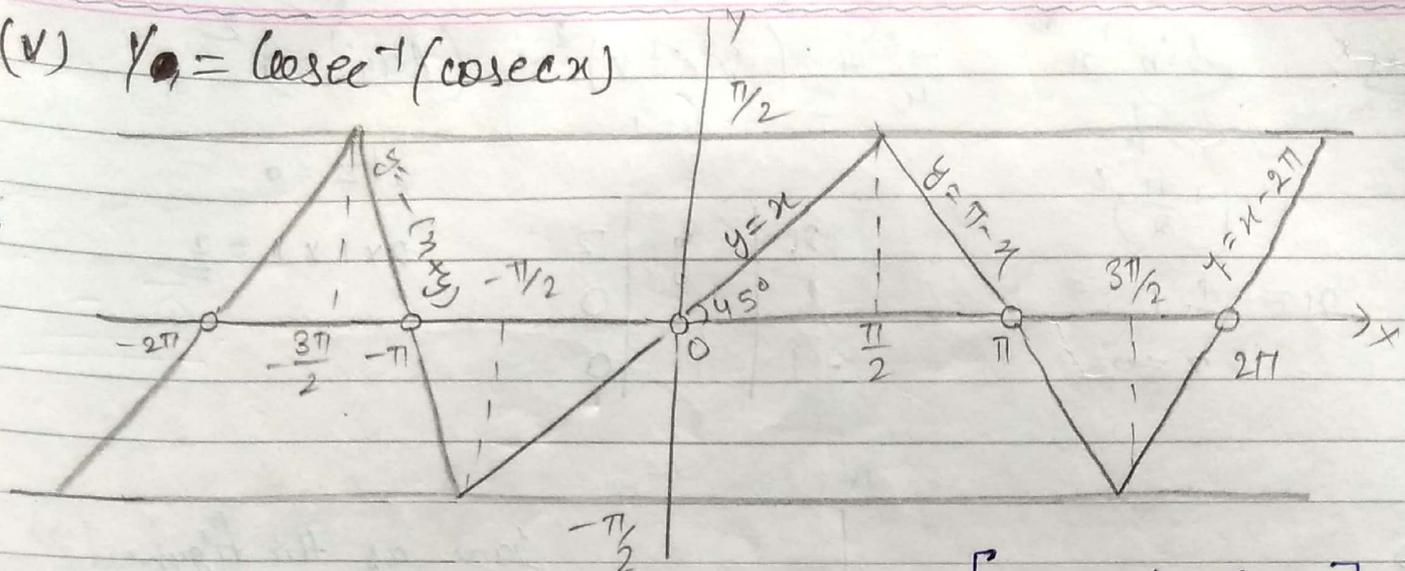 (V) Y = Cosec⁻¹(cosecx)
Y
π/2
y = -(π+x)
y=x
y = π-x
y = x-2π
-π/2
45°
3π/2
-2π
-3π/2
-π
0
π/2
π
2π
X
-π/2